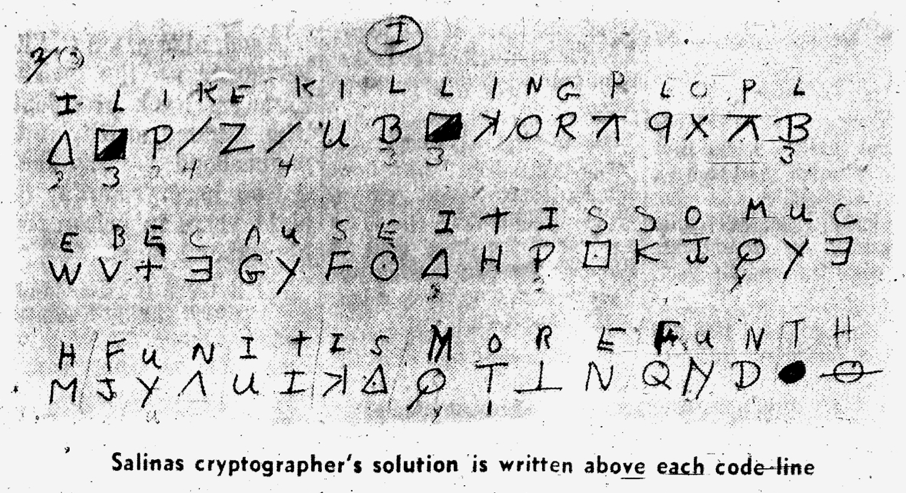 I
I L I K E K I L L I N G P L O P L
Δ ◪ P / Z / U B ◪ ꓘ O R ⊼ 9 X ⊼ B
E B E C A U S E I T I S S O M U C
W V + Ǝ G Y F ⊙ Δ H P ⊡ K I ⌀ Y Ǝ
H / F U N I T / I S M O R E F U N T H
M J Y Λ U I ꓘ ◬ ⌀ T ⊥ N Q Y D ● ⊖
Salinas cryptographer's solution is written above each code line